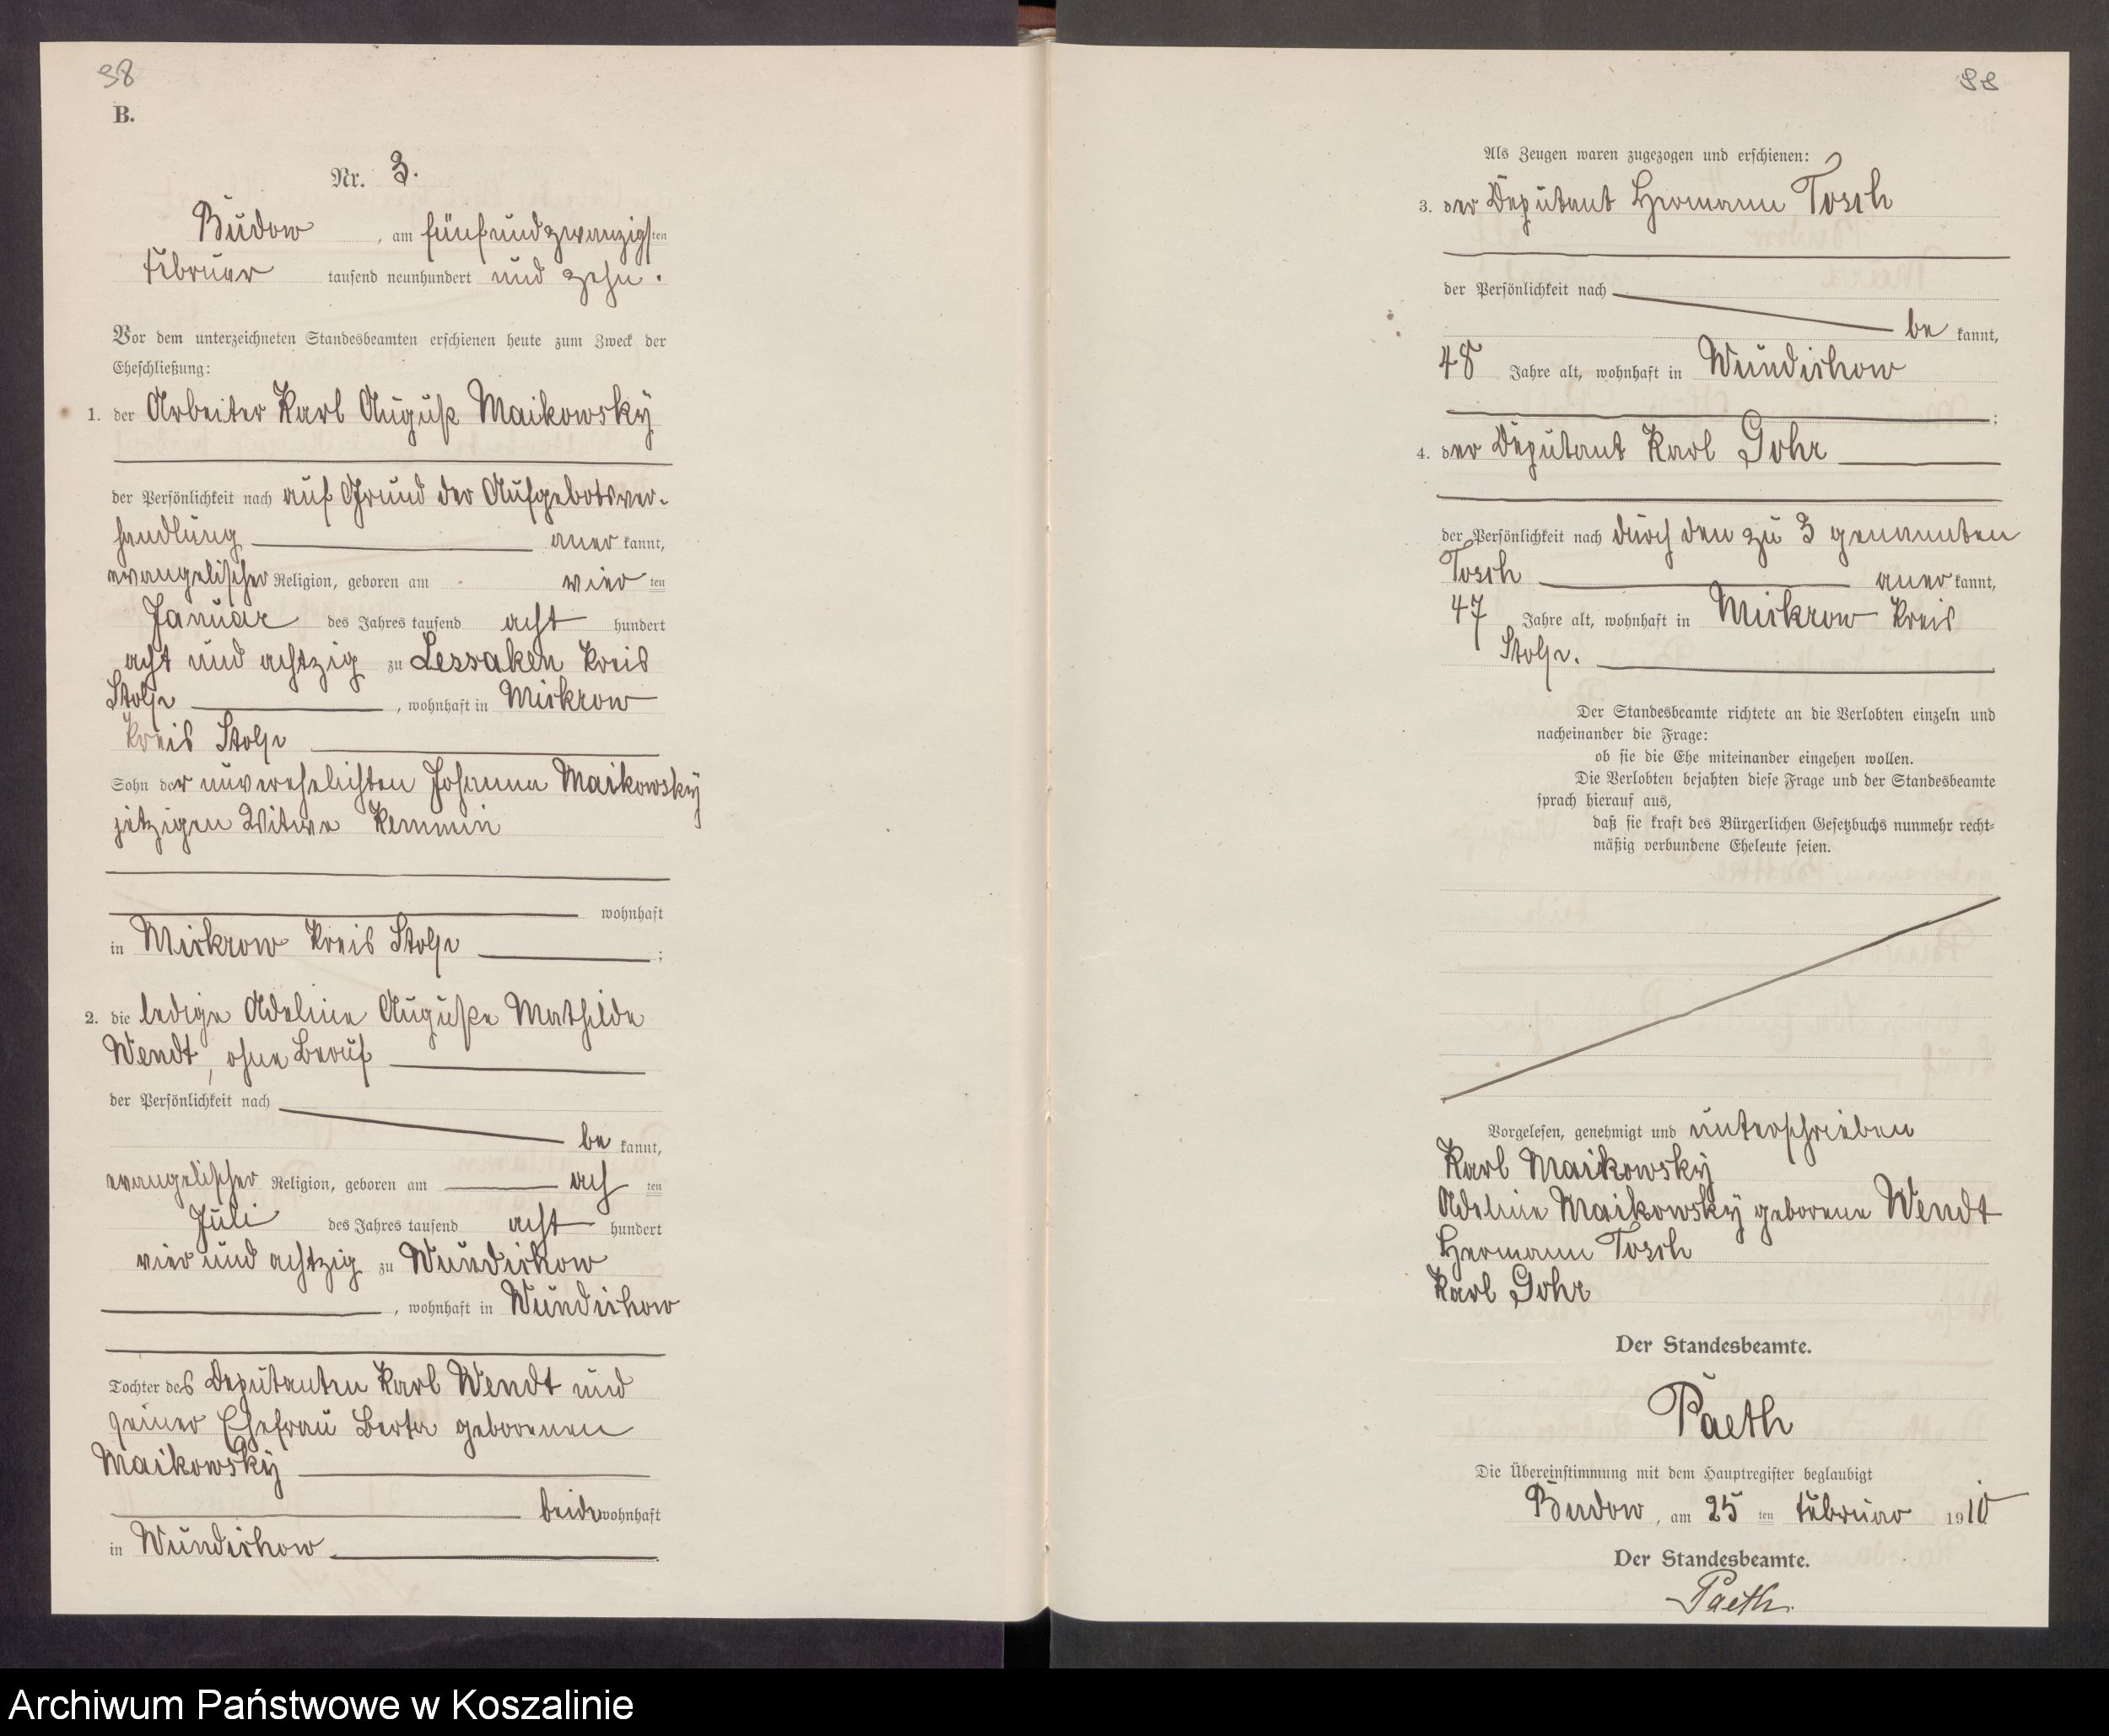 38
B.
Nr. 3.
Budow, am fünfundzwanzigsten
Februar tausend neunhundert und zehn.
Vor dem unterzeichneten Standesbeamten erschienen heute zum Zweck der
Eheschließung:
1. der Arbeiter Karl August Maikowsky
der Persönlichkeit nach auf Grund der Aufgebotsver-
handlung anerkannt,
evangelischer Religion, geboren am vierten
Januar des Jahres tausend achthundert
acht und achtzig zu Lessaken Kreis
Stolp, wohnhaft in Mickrow
Kreis Stolp
Sohn der unverehelichten Johanna Maikowsky
jetzigen Witwe Kemmin
wohnhaft
in Mickrow Kreis Stolp;
2. die ledige Adeline Auguste Mathilde
Wendt, ohne Beruf
der Persönlichkeit nach
bekannt,
evangelischer Religion, geboren am achten
Juli des Jahres tausend achthundert
vier und achtzig zu Wundichow
, wohnhaft in Wundichow
Tochter des Deputanten Karl Wendt und
seiner Ehefrau Berta geborenen
Maikowsky
beide wohnhaft
in Wundichow.
88
Als Zeugen waren zugezogen und erschienen:
3. der Deputant Hermann Tosch
der Persönlichkeit nach
bekannt,
48 Jahre alt, wohnhaft in Wundichow
;
4. der Deputant Karl Gohr
der Persönlichkeit nach durch den zu 3 genannten
Tosch anerkannt,
47 Jahre alt, wohnhaft in Mickrow Kreis
Stolp.
Der Standesbeamte richtete an die Verlobten einzeln und
nacheinander die Frage:
ob sie die Ehe miteinander eingehen wollen.
Die Verlobten bejahten diese Frage und der Standesbeamte
sprach hierauf aus,
daß sie kraft des Bürgerlichen Gesetzbuchs nunmehr recht-
mäßig verbundene Eheleute seien.
Vorgelesen, genehmigt und unterschrieben
Karl Maikowsky
Adeline Maikowsky geborene Wendt
Hermann Tosch
Karl Gohr
Der Standesbeamte.
Paeth
Die Übereinstimmung mit dem Hauptregister beglaubigt
Budow, am 25 ten Februar 1910
Der Standesbeamte.
Paeth.
Archiwum Państwowe w Koszalinie